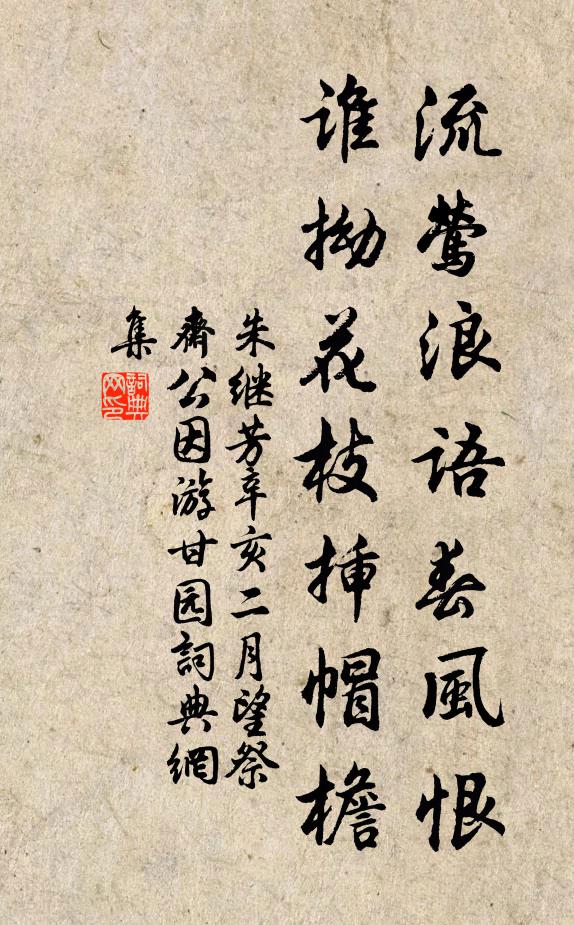 流莺浪語春風恨
誰拗花枝挿帽檐
朱继芳辛亥二月望祭
齋公因游甘园詞典網
集
詞典
网印